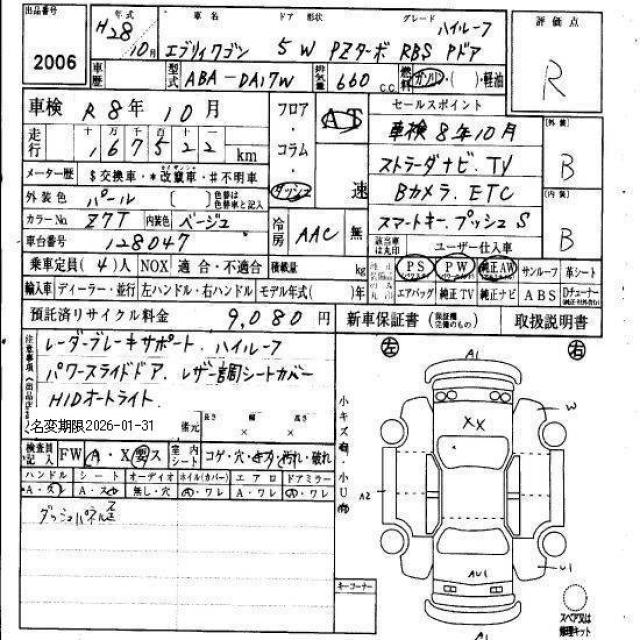 出品番号
2006
年式 車名 ドア 形状 グレード
H28 10月 エブリィワゴン 5 W PZターボ RBS Pドア ハイルーフ
評価点
R
車歴 型式 ABA-DA17W 排気量 660 c.c. 燃料 ガソリン・( )・軽油
車検 R 8年 10月
走行 十 万 千 百 十 一
1 6 7 5 2 2 km
メーター歴 $交換車・*改竄車・#不明車
外装色 パール [ ] 色替は色替車と記入
カラーNo. Z7T 内装色 ベージュ
車台番号 128047
フロア・コラム・ダッシュ
AT 速
冷房 AAC 無
セールスポイント
車検 8年10月
ストラーダナビ. TV
Bカメラ. ETC
スマートキー. プッシュS
該当車は丸印 ユーザー仕入車
外装 B
内装 B
乗車定員(4)人 NOX 適合・不適合 積載量 kg
PS PW 純正AW サンルーフ 革シート
輸入車 ディーラー・並行 左ハンドル・右ハンドル モデル年式( )年
エアバッグ 純正TV 純正ナビ ABS
預託済リサイクル料金 9,080円 新車保証書(保証継続可能のもの) 取扱説明書
注意事項(出品店)
レーダーブレーキサポート. ハイルーフ
パワースライドドア. レザー調シートカバー
HIDオートライト.
名変期限2026-01-31
張元 長さ 幅 高さ
× ×
検査員記入 FW A・X要ス 室内シート コゲ・穴・キズ・汚れ・破れ
ハンドル シート オーディオ ホイル(カバー) エアロ ドアミラー
A・スレ A・スレ 無し・穴 A・ワレ A・ワレ A・ワレ
ダッシュパネル歪
小キズ有・小U有
左 右
A1
XX
W
A2
AU1
U1
A1
キーコーナー
スペア又は修理キット